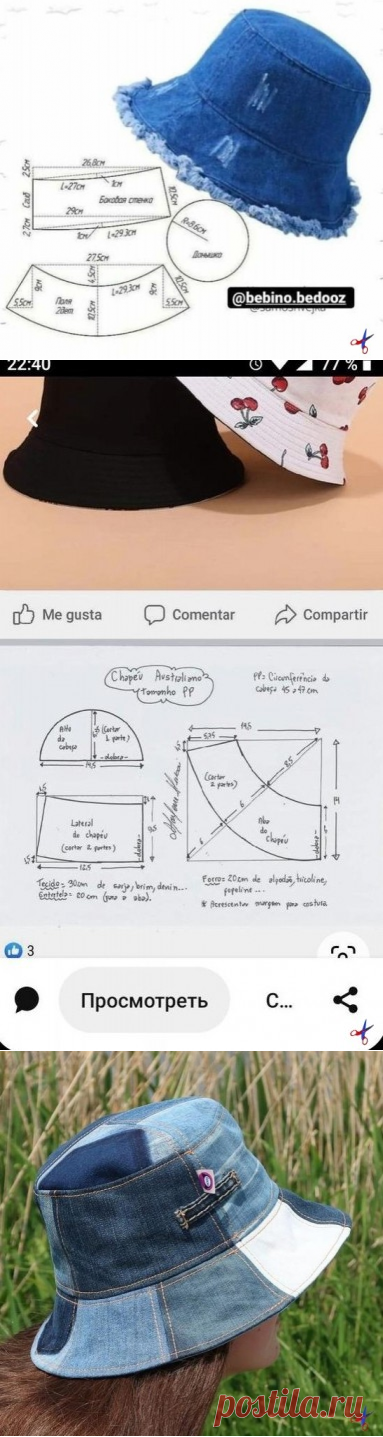 26,8см
2,5см
L=27см
1см
Сгиб
Боковая стенка
10,5см
29см
2,7см
1см
L=29.3см
R=8,6см
Донышко
27,5см
4,5см
L=29,3см
10,5см
9см
9см
5.5см
Поля
2дет
10,5см
5.5см
@bebino.bedooz
22:40
77%
Me gusta
Comentar
Compartir
Chapéu Australiano
Tamanho PP
PP= Circunferência da
cabeça 45 a 47 cm
Alto
da
cabeça
(Cortar
1 parte)
-dobra-
14,5
14,5
5,25
8,5
(cortar
2 partes)
6
6
Aba
do
Chapéu
14
dobra
Lateral
do chapéu
(cortar 2 partes)
dobra
8,5
1,5
12,5
Tecido= 30cm de sarja, brim, denim...
Entretela= 20cm (para a aba).
Forro= 20cm de algodão, tricoline,
popeline...
* Acrescentar margem para costura
3
Просмотреть
С...
postila.ru